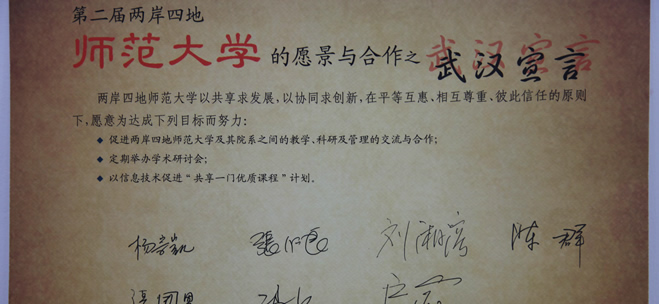 第二届两岸四地
师范大学的愿景与合作之武汉宣言
两岸四地师范大学以共享求发展,以协同求创新,在平等互惠、相互尊重、彼此信任的原则
下,愿意为达成下列目标而努力:
◆ 促进两岸四地师范大学及其院系之间的教学、科研及管理的交流与合作;
◆ 定期举办学术研讨会;
◆ 以信息技术促进“共享一门优质课程”计划。
陈群